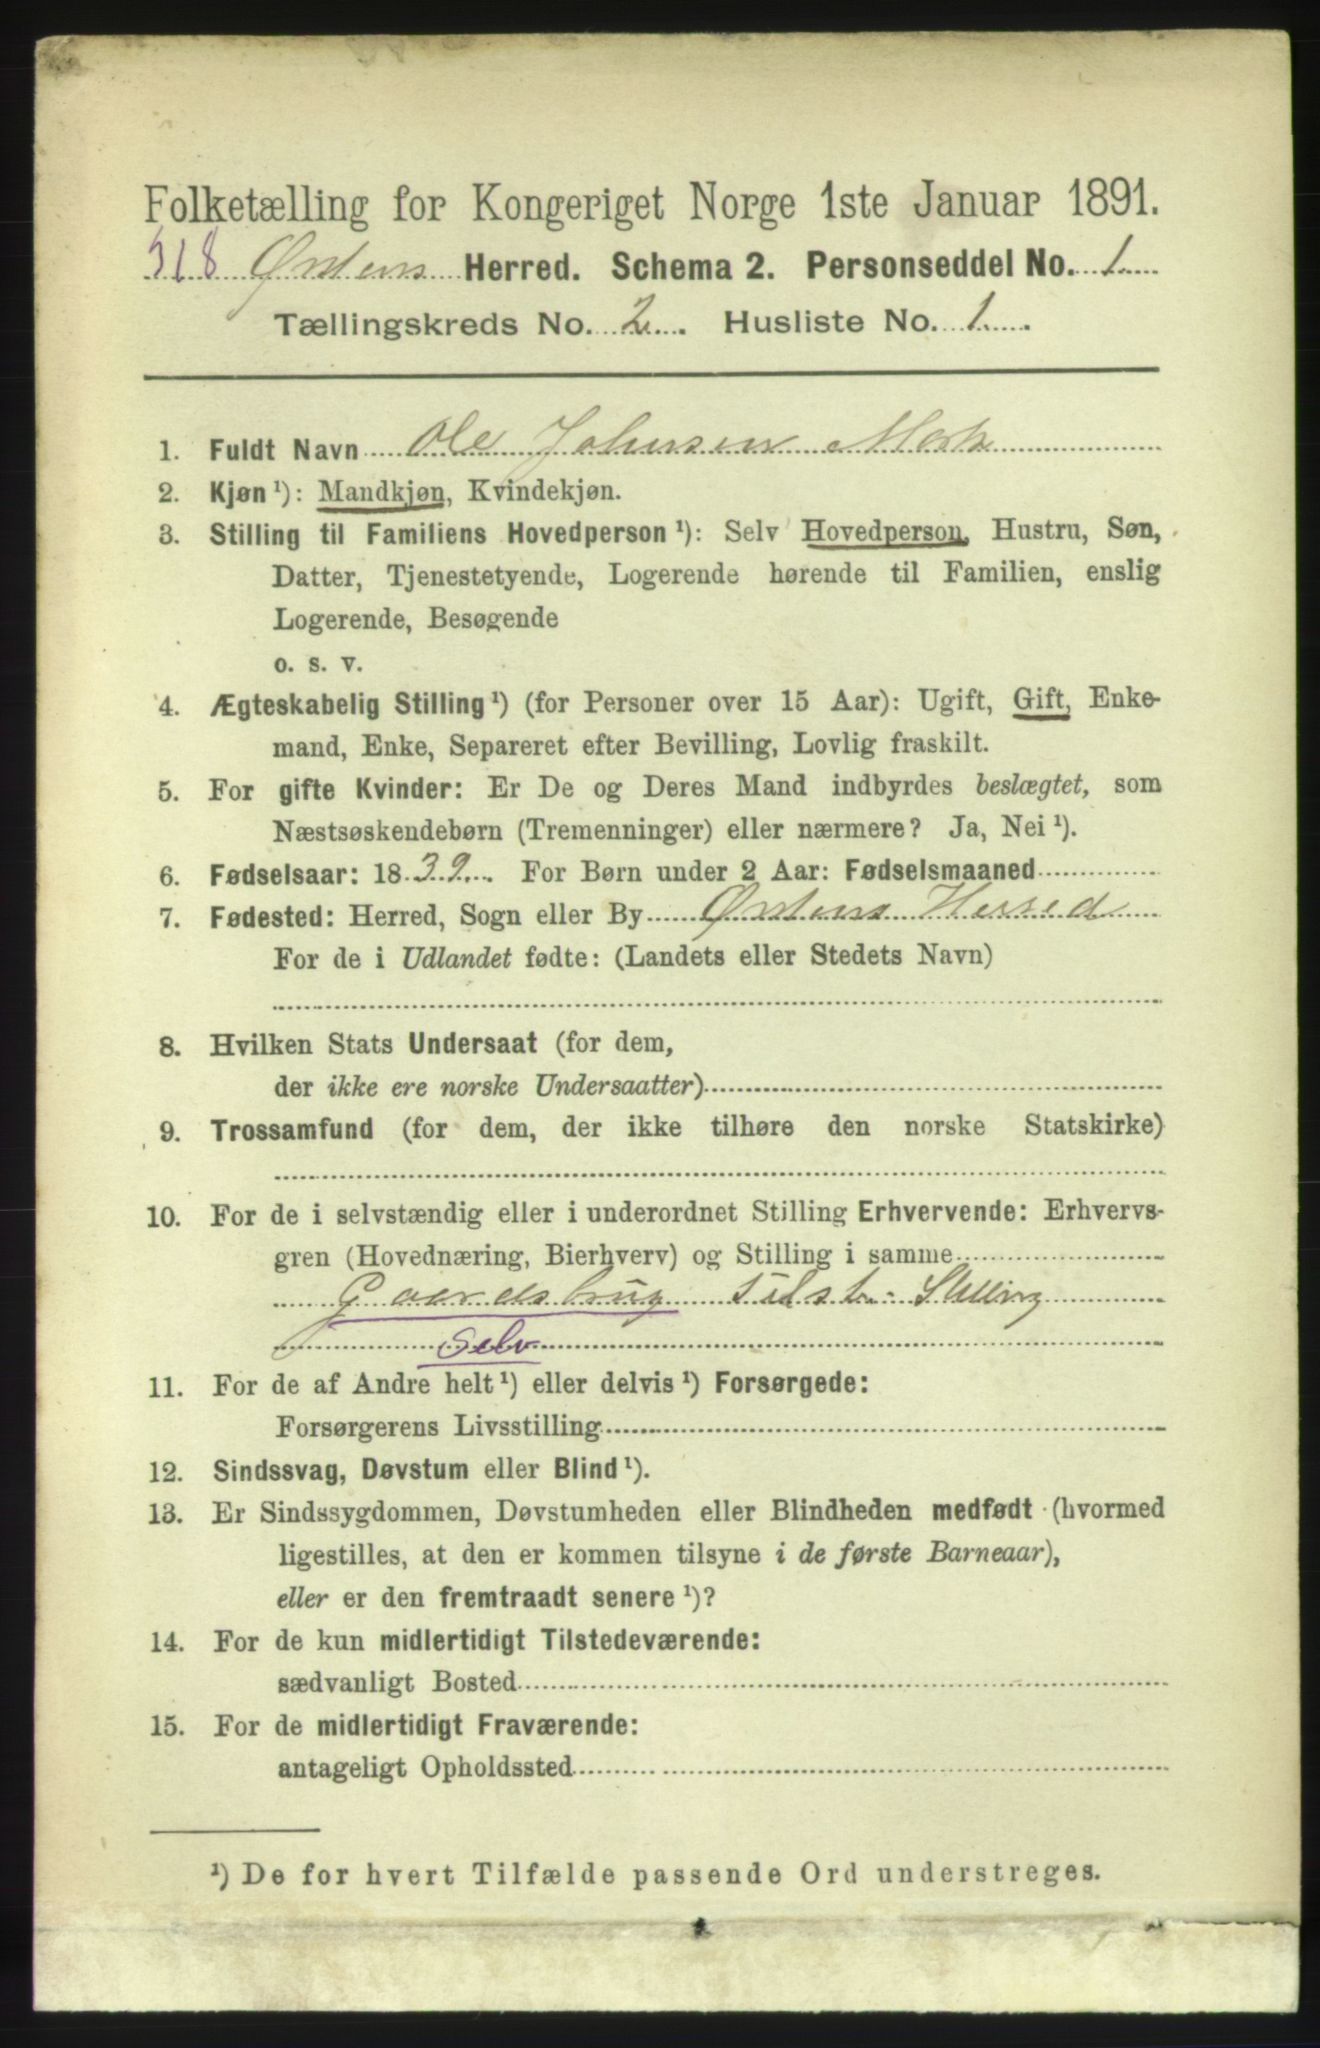 Folketælling for Kongeriget Norge 1ste Januar 1891.
318 Ørstens Herred. Schema 2. Personseddel No. 1
Tællingskreds No. 2. Husliste No. 1.
1. Fuldt Navn Ole Johnsen Mork
2. Kjøn ¹): Mandkjøn, Kvindekjøn.
3. Stilling til Familiens Hovedperson ¹): Selv Hovedperson, Hustru, Søn,
Datter, Tjenestetyende, Logerende hørende til Familien, enslig
Logerende, Besøgende
o. s. v.
4. Ægteskabelig Stilling ¹) (for Personer over 15 Aar): Ugift, Gift, Enke-
mand, Enke, Separeret efter Bevilling, Lovlig fraskilt.
5. For gifte Kvinder: Er De og Deres Mand indbyrdes beslægtet, som
Næstsøskendebørn (Tremenninger) eller nærmere? Ja, Nei ¹).
6. Fødselsaar: 1839. For Børn under 2 Aar: Fødselsmaaned
7. Fødested: Herred, Sogn eller By Ørstens Herred
For de i Udlandet fødte: (Landets eller Stedets Navn)
8. Hvilken Stats Undersaat (for dem,
der ikke ere norske Undersaatter)
9. Trossamfund (for dem, der ikke tilhøre den norske Statskirke)
10. For de i selvstændig eller i underordnet Stilling Erhvervende: Erhvervs-
gren (Hovednæring, Bierhverv) og Stilling i samme
Gaardsbrug Selvst. Stilling
Selv
11. For de af Andre helt ¹) eller delvis ¹) Forsørgede:
Forsørgerens Livsstilling
12. Sindssvag, Døvstum eller Blind ¹).
13. Er Sindssygdommen, Døvstumheden eller Blindheden medfødt (hvormed
ligestilles, at den er kommen tilsyne i de første Barneaar),
eller er den fremtraadt senere ¹)?
14. For de kun midlertidigt Tilstedeværende:
sædvanligt Bosted
15. For de midlertidigt Fraværende:
antageligt Opholdssted
¹) De for hvert Tilfælde passende Ord understreges.